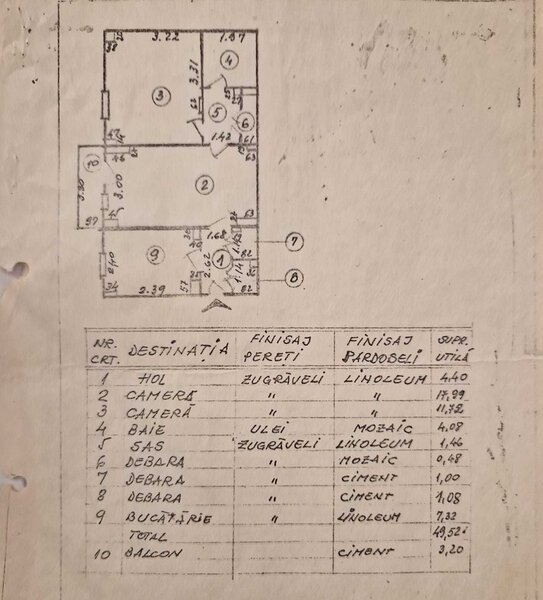 3.22
1.87
4
3.31
3
5
6
62
1.42
61
47
63
46
3.00
3.20
2
45
63
1.68
7
9
2.40
2.62
1
1.14
8
34
2.39
57
82
82
NR. CRT. DESTINAȚIA FINISAJ PEREȚI FINISAJ PARDOSELI SUPR. UTILĂ
1 HOL ZUGRĂVELI LINOLEUM 4.40
2 CAMERĂ " " 17,99
3 CAMERĂ " " 11,72
4 BAIE ULEI MOZAIC 4,08
5 SAS ZUGRĂVELI LINOLEUM 1,46
6 DEBARA " MOZAIC 0,48
7 DEBARA " CIMENT 1,00
8 DEBARA " CIMENT 1,08
9 BUCĂTĂRIE " LINOLEUM 7,32
TOTAL 49,52
10 BALCON CIMENT 3,20